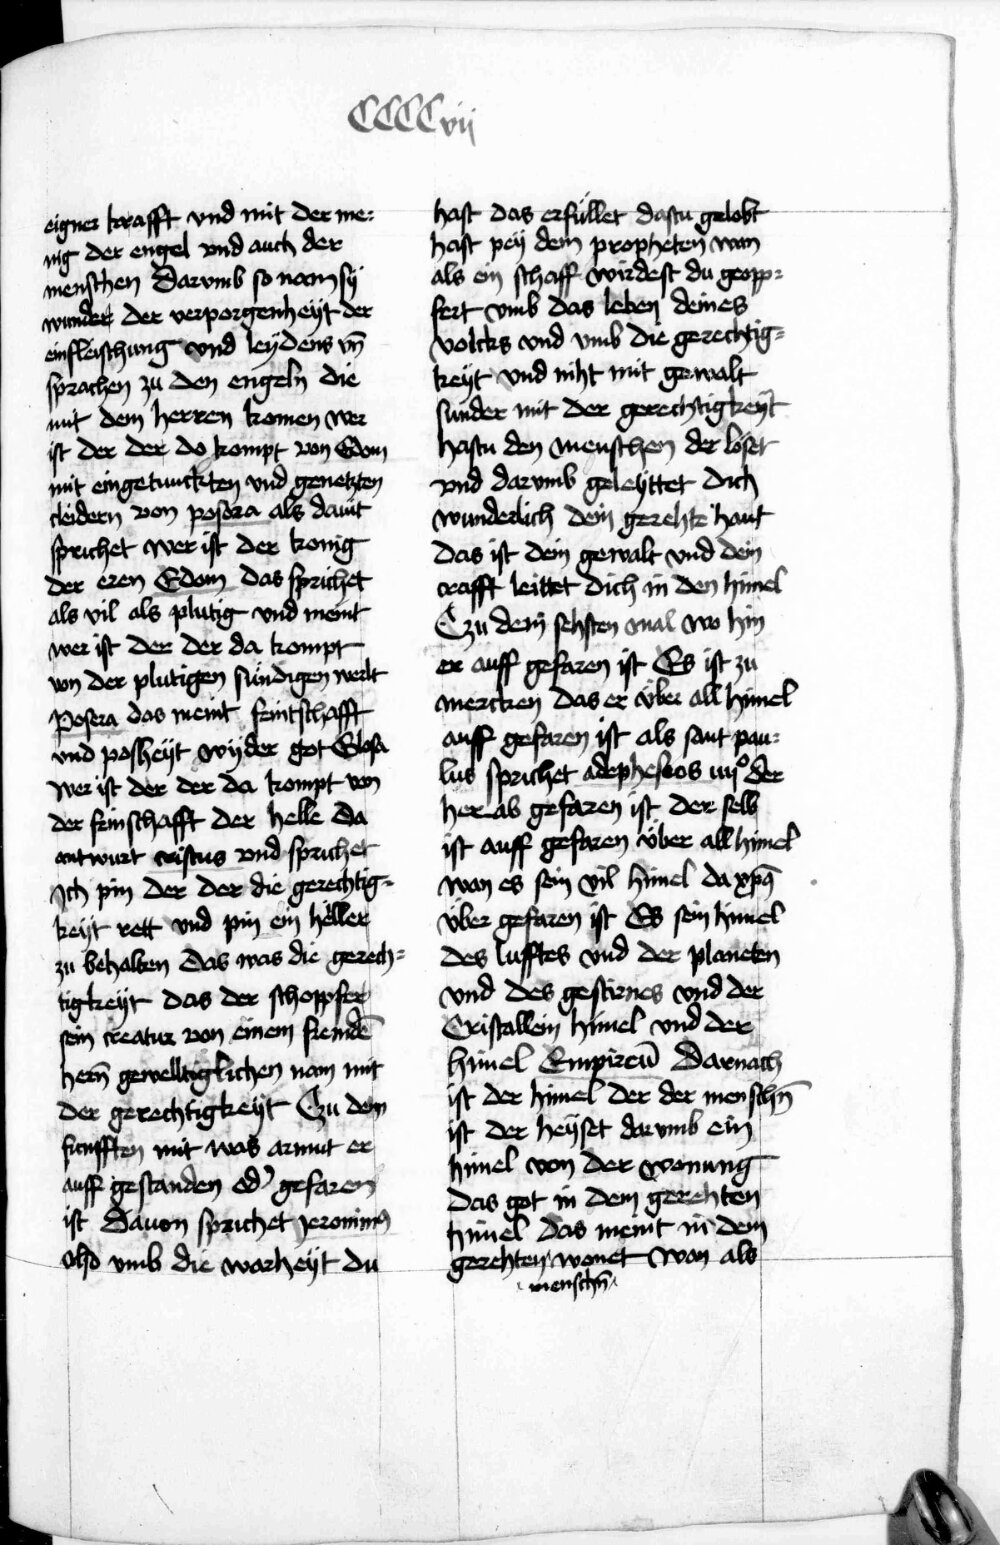 CCCCvij
eigner krafft vnd mit der me-
nig der engel vnd auch der
menschen Darvmb so nam sy
wunder der verporgenheyt der
einfleischung vnd leydens vn̄
sprachen zu den engeln die
mit dem herren komen wer
ist der der do kompt von Edom
mit eingetunckten vnd genetzten
cleidern von posera als dauit
sprichet wer ist der konig
der eren Edom das sprichet
als vil als plutig vnd meint
wer ist der der da kompt
von der plutigen sündigen werlt
Posera das meint feintschafft
vnd posheyt wyder got Glosa
wer ist der der da kompt von
der feinschafft der helle da
antwurt cristus vnd sprichet
Ich pin der der die gerechtig-
keyt rett vnd pin ein heller
zu behalten das was die gerech-
tigkeyt das der schoppfer
sein creatur von einem fremdē
hern̄ gewelltiglichen nam mit
der gerechtigkeyt Czu dem
funfften mit was armut er
auff gestanden od' gefaren
ist Dauon sprichet Jeronimus
vmb die warheyt du
hast das erfüllet dastu gelobt
hast pey dem propheten wan
als ein schaff wirdest du geopp-
fert vmb das leben deines
volcks vnd vmb die gerechtig-
keyt vnd niht mit gewalt
sunder mit der gerechtigkeyt
hastu den menschen der löset
vnd darvmb geleyttet dich
wunderlich dein gerehte hant
das ist dein gewalt vnd dein
crafft leittet dich in den himel
Czu dem sehsten mal wo hin
er auff gefaren ist Es ist zu
mercken das er über all himel
auff gefaren ist als sant pau-
lus sprichet adephesios iiijo der
her ab gefaren ist der selb
ist auff gefaren über all himel
wan es sein vil himel da xp̄s
über gefaren ist Es sein himel
des lufftes vnd der planeten
vnd des gestirnes vnd der
Cristallein himel vnd der
himel Empireū Darnach
ist der himel der der menschn̄
ist der heyset darvmb ein
himel von der wonung
das got in dem gerehten
himel das meint in dem
gerehten wonet wan als
menschn̄